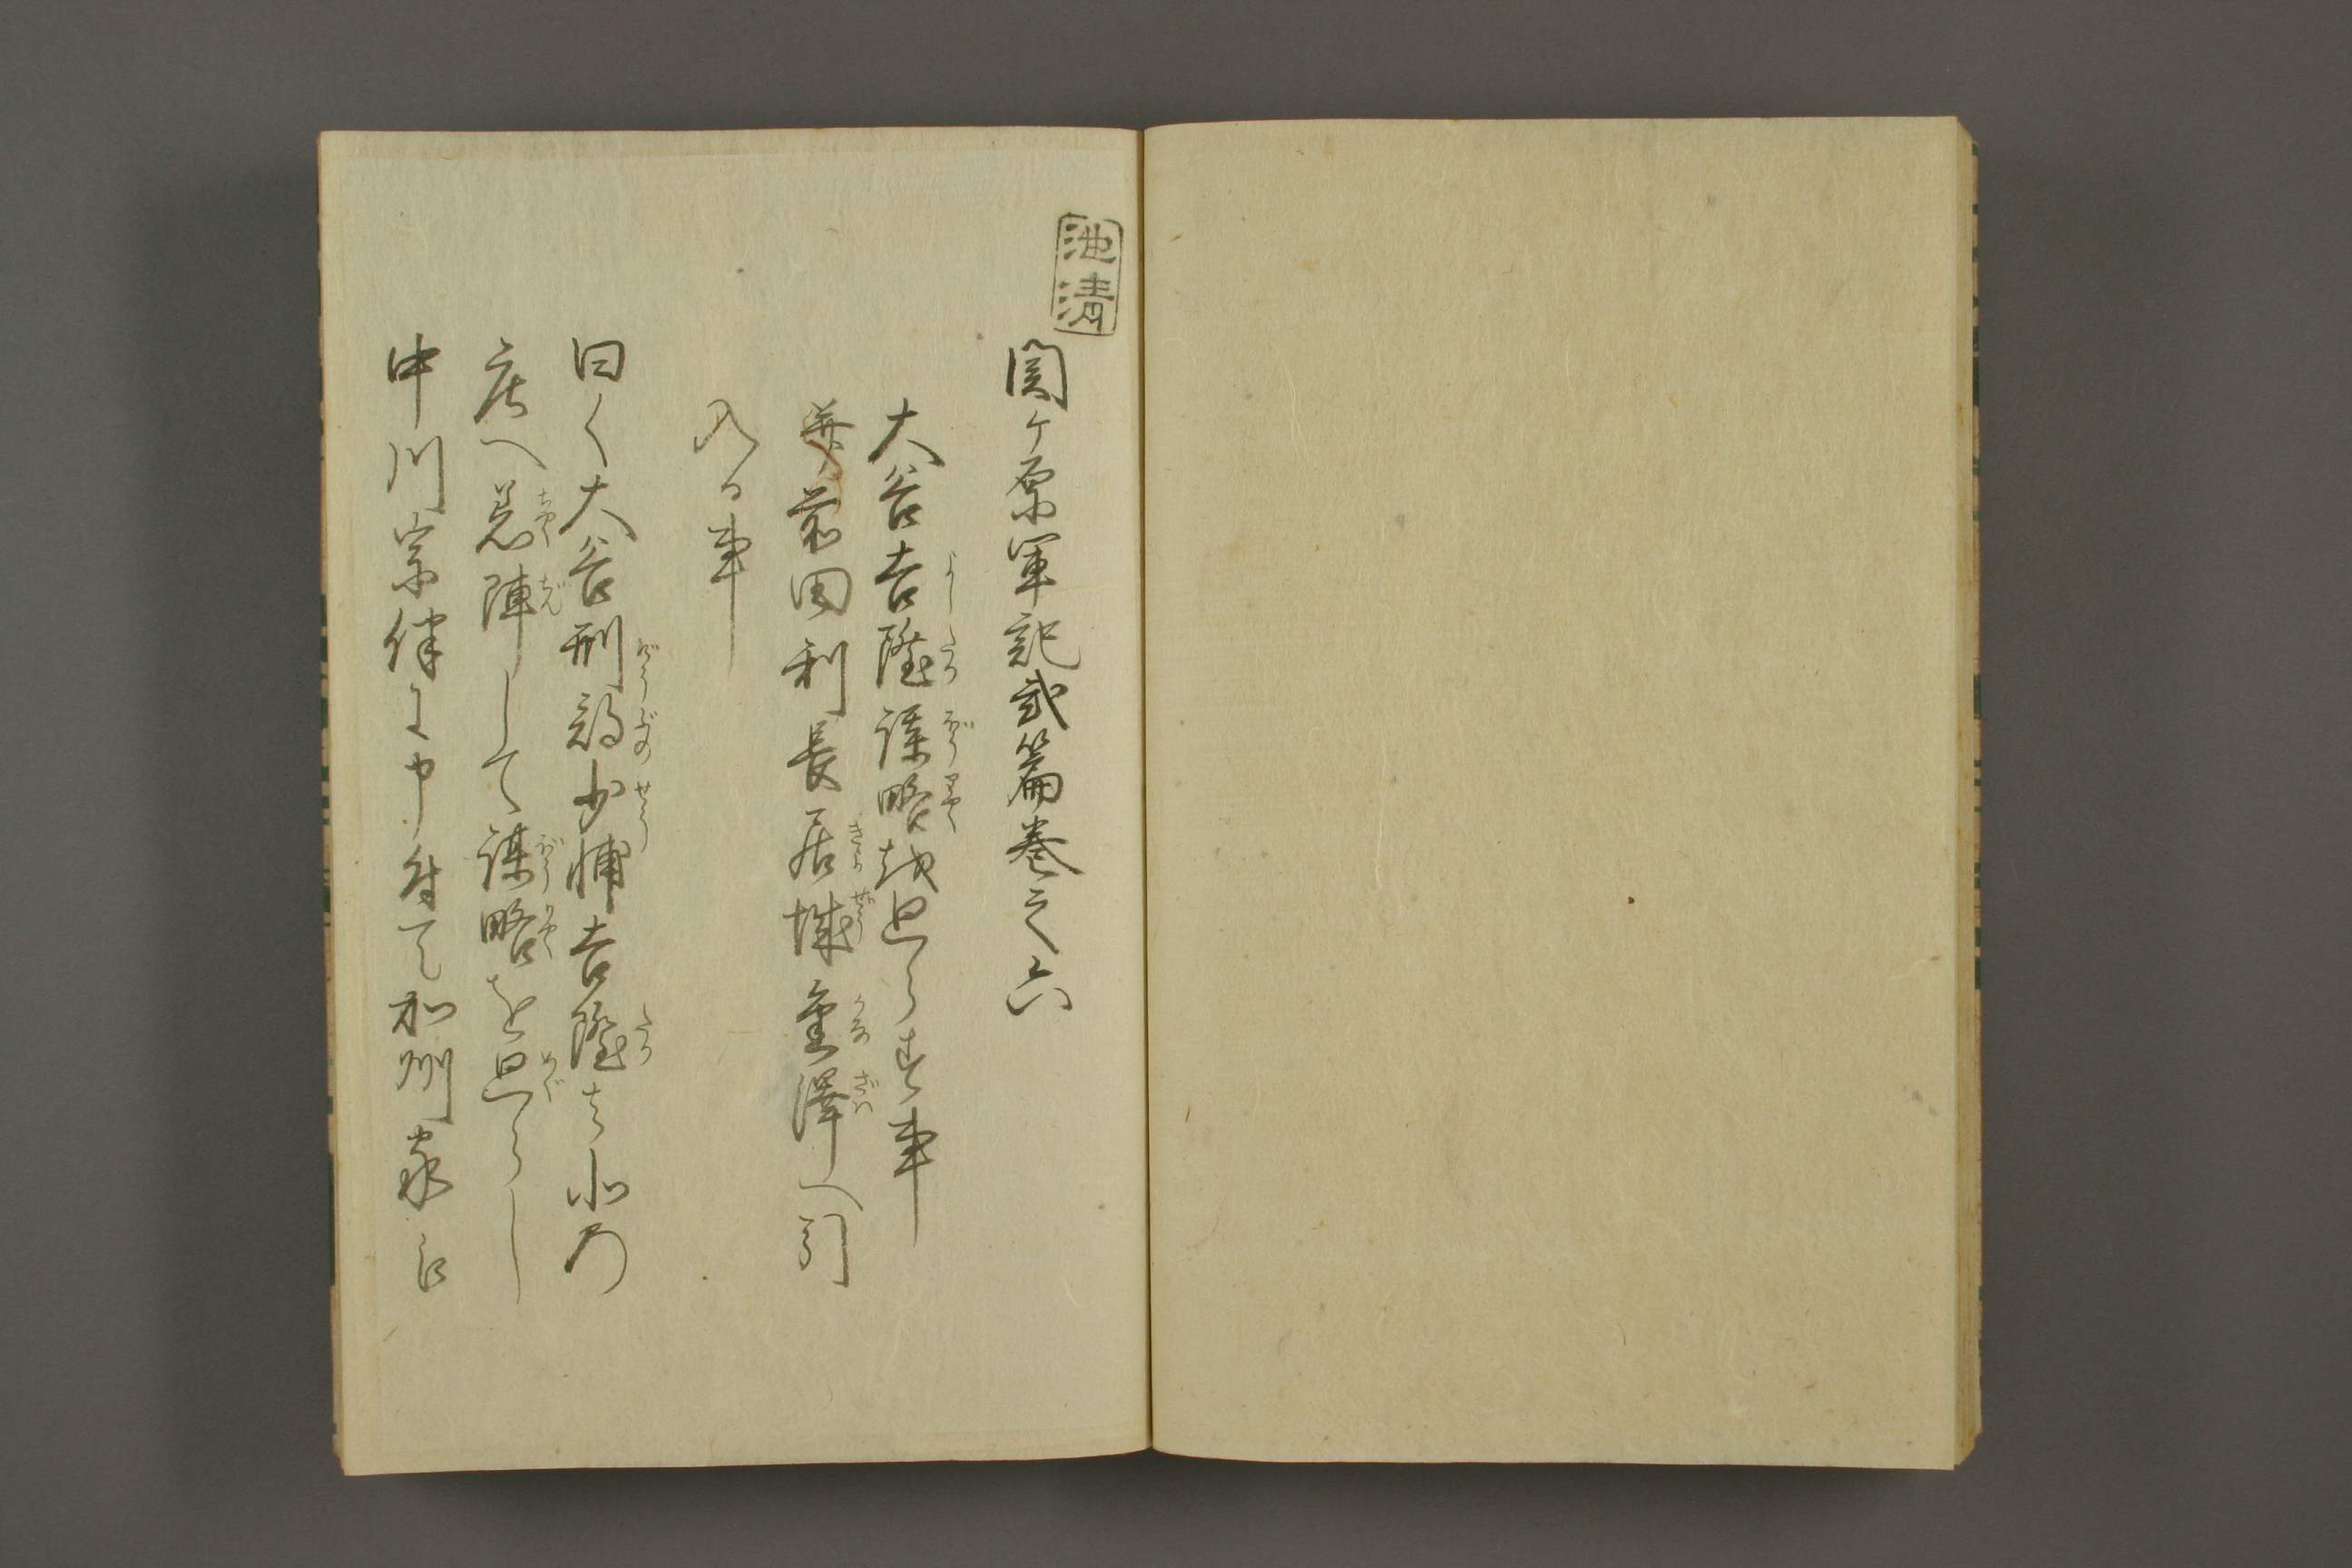 池清
関ケ原軍記弐篇巻之六
大谷吉隆謀略を廻らす事
並前田利長居城金澤へ引
入る事
曰く大谷刑部少輔吉隆は北の
庄へ着陣して謀略を廻らし
中川宗伴に申付て加州家江